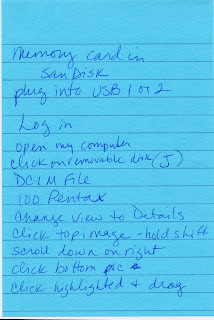 Memory card in
SanDisk
plug into USB 1 or 2
Log in
open my computer
click on removable disk (J)
DCIM File
100 Pentax
Change View to Details
Click top image - hold shift
scroll down on right
click bottom pic
click highlighted + drag